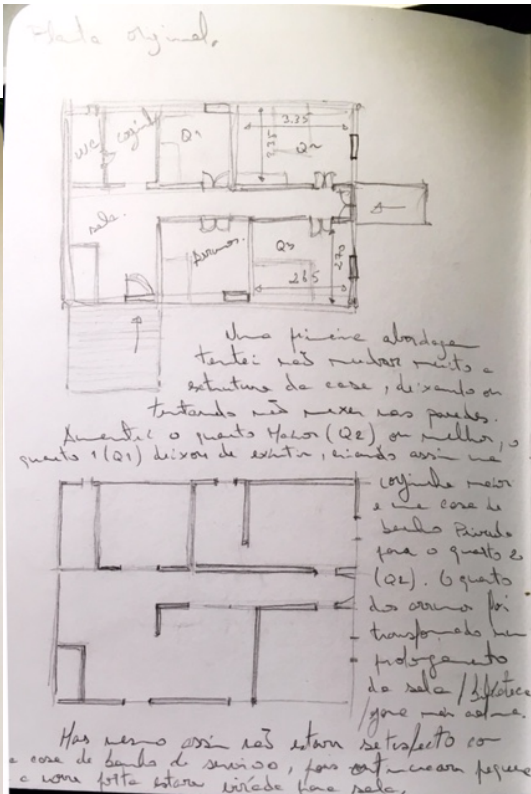 Planta original.
WC
cozinha
Q1
3.35
3.35
Q2
sala.
Arrumos.
Q3
2.65
2.70
Uma primeira abordagem
tentei não mudar muito a
estrutura da casa, deixando ou
tentando não mexer nas paredes.
Aumentei o quarto Maior (Q2) ou melhor, o
quarto 1 (Q1) deixou de existir, criando assim uma
cozinha maior
e uma casa de
banho Privada
para o quarto 2
(Q2). O quarto
dos arrumos foi
transformado num
prolongamento
da sala / Biblioteca
/ zona mais calma.
Mas mesmo assim não estava satisfeito com
a casa de banho de serviço, pois continuava pequena
e a porta estava virada para sala.